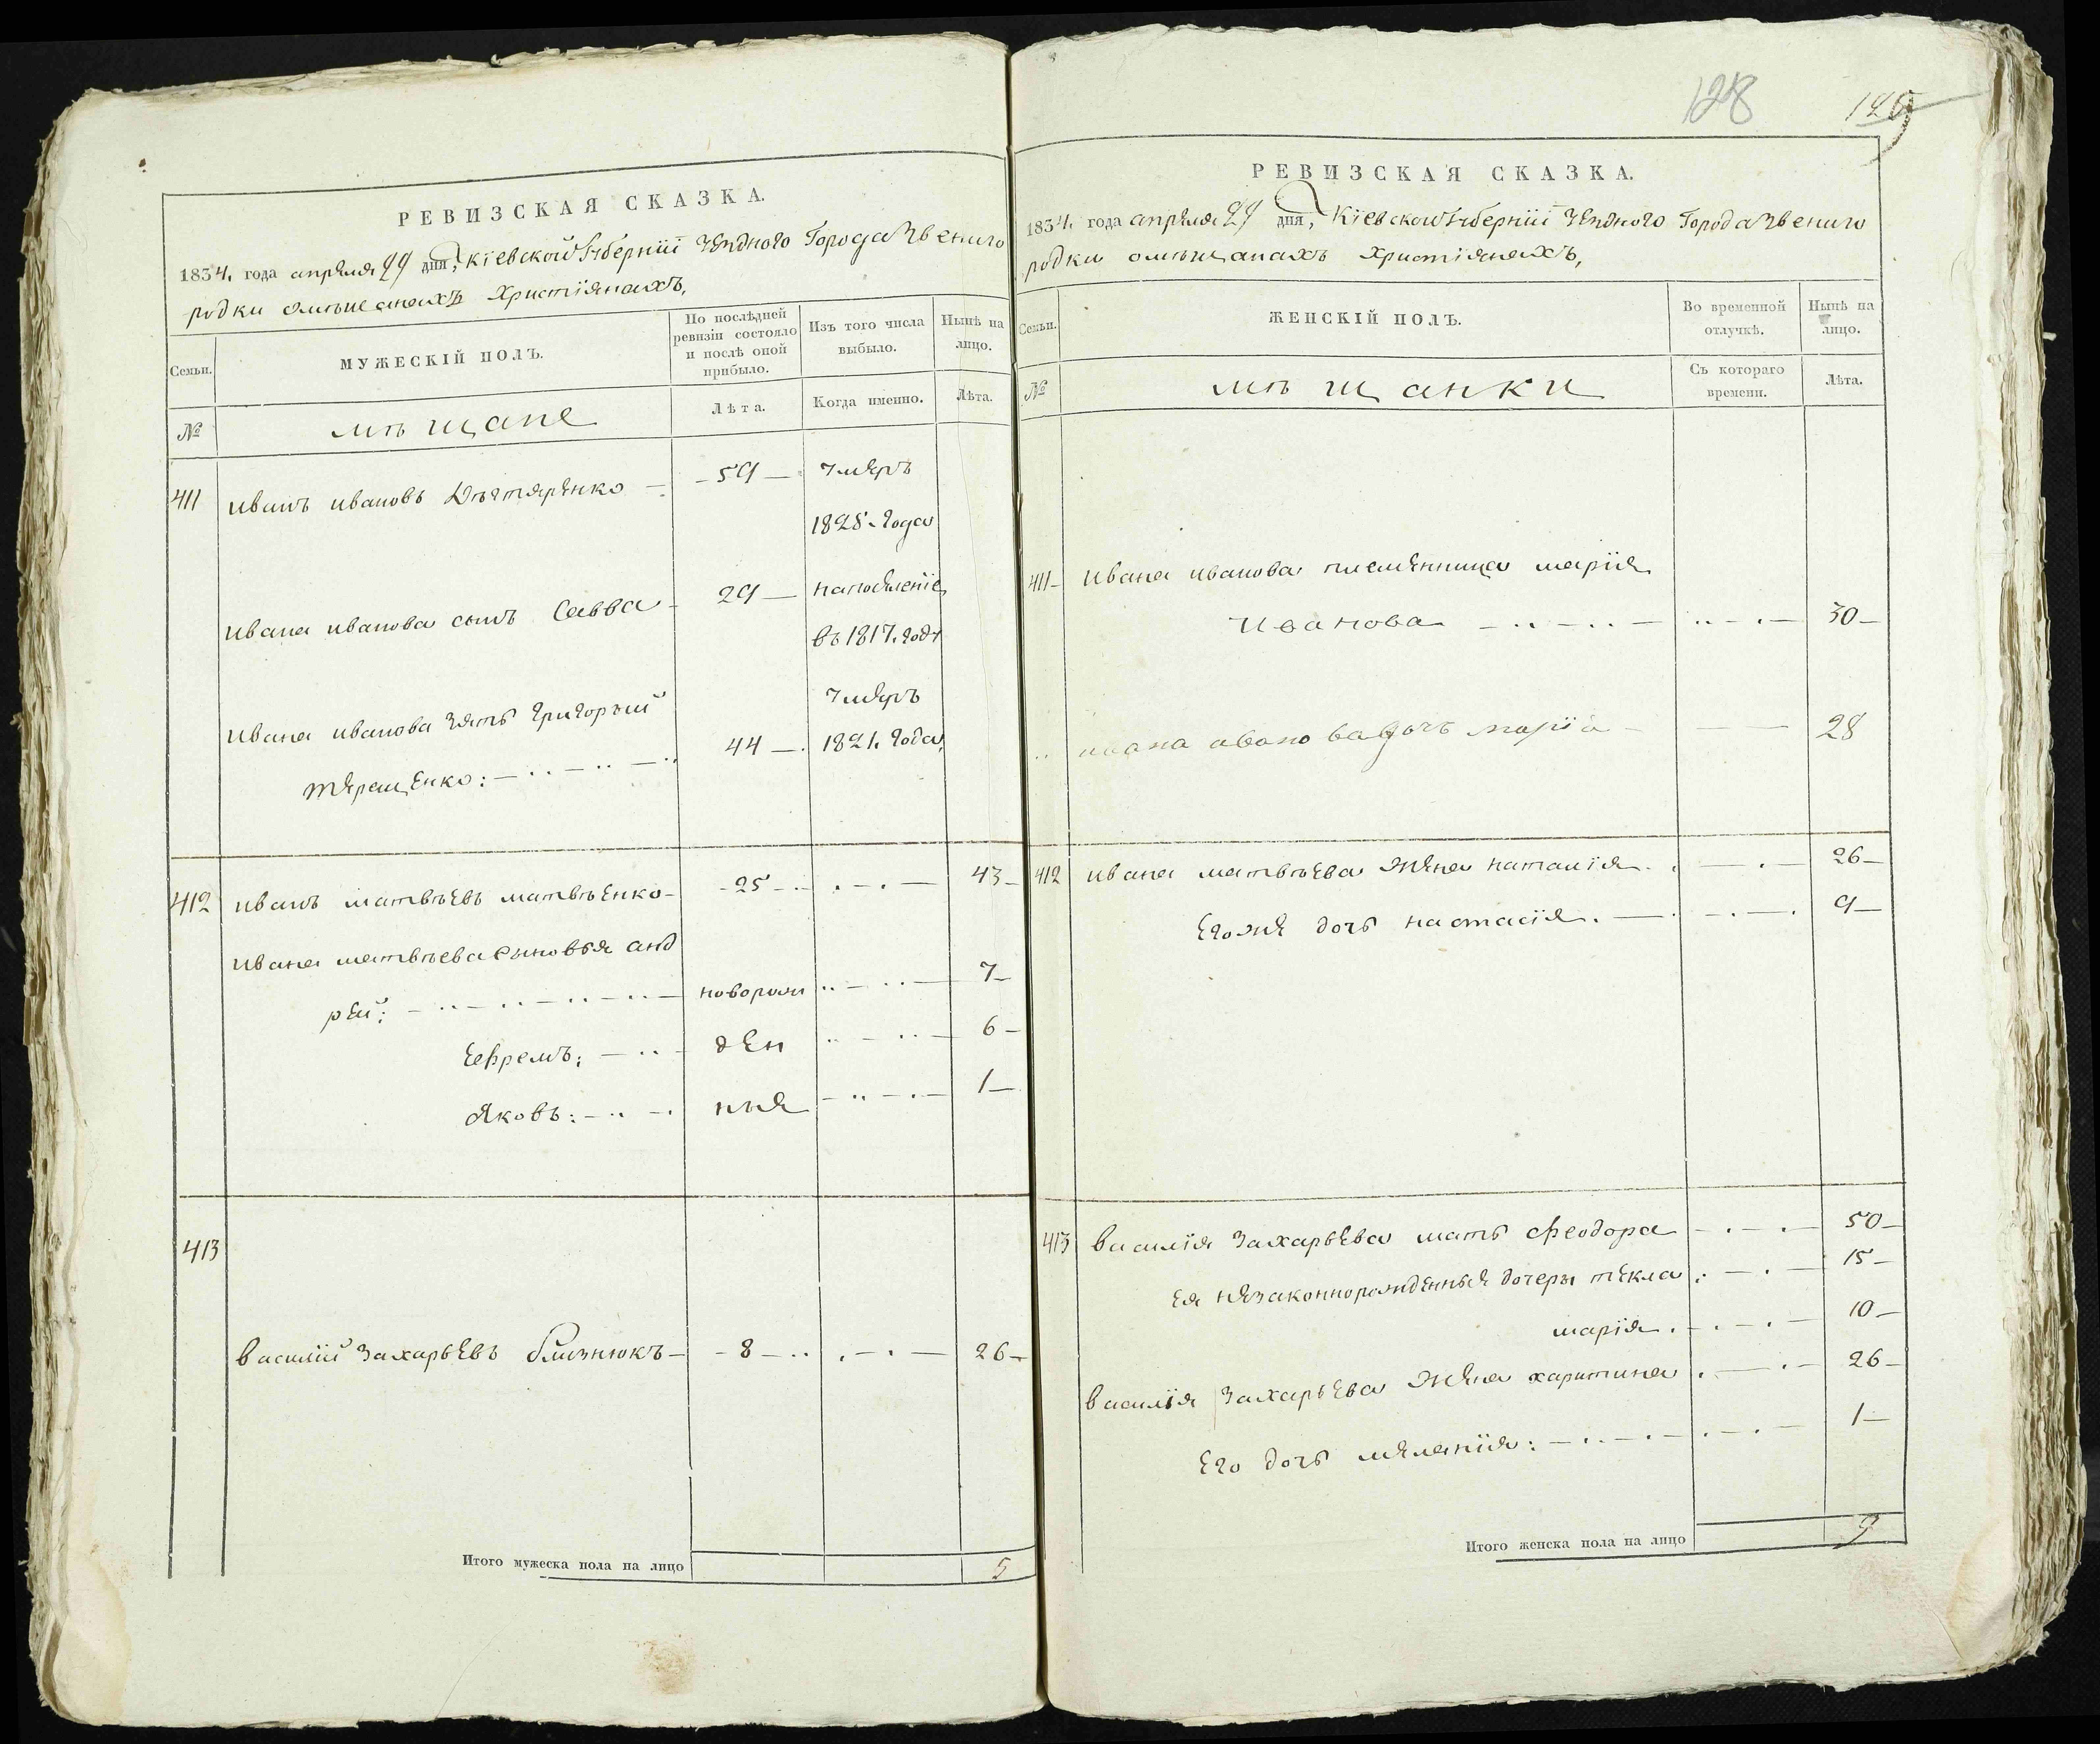 РЕВИЗСКАЯ СКАЗКА.
1834. года апреля 29 дня, Кіевской Губерніи Уезднаго Города Звениго
родки омѣщанахъ Христіянахъ,
Семьи.
МУЖЕСКІЙ ПОЛЪ.
По послѣдней ревизіи состояло и послѣ оной прибыло.
Изъ того числа выбыло.
Нынѣ на лицо.
№
мѣщане
Лѣта.
Когда именно.
Лѣта.
411 иванъ ивановъ Дѣгтяренко — 59 — умеръ
1828. года
ивана иванова сынъ Савва — 29 — напоселеніе
въ 1817. году
ивана иванова зять григорий умеръ
терещенко: 44 — 1821. года,
412 иванъ матвѣевъ матвѣенко — 25 — 43 —
ивана матвѣева сыновья анд
рей: новорож 7 —
ефремъ: ден 6 —
яковъ: ные 1 —
413
василій захарьевъ близнюкъ — 8 — 26 —
Итого мужеска пола на лицо 5
128
РЕВИЗСКАЯ СКАЗКА.
1834. года апреля 29 дня, Кіевской Губерніи Уезднаго Города Звениго
родки омѣщанахъ христіянахъ,
Семьи.
ЖЕНСКІЙ ПОЛЪ.
Во временной отлучкѣ.
Нынѣ на лицо.
№
мѣщанки
Съ котораго времени.
Лѣта.
411 — ивана иванова племенница марія
иванова 30 —
ивана иванова дочь марія — 28
412 ивана матвѣева жена наталія 26 —
Егоже дочь настасія. 9 —
413 василія захарьева мать феодора 50 —
Ея незаконнорожденные дочеры текла 15 —
марія. 10 —
василія захарьева жена харитина 26 —
Его дочь меланія: 1 —
Итого женска пола на лицо 9